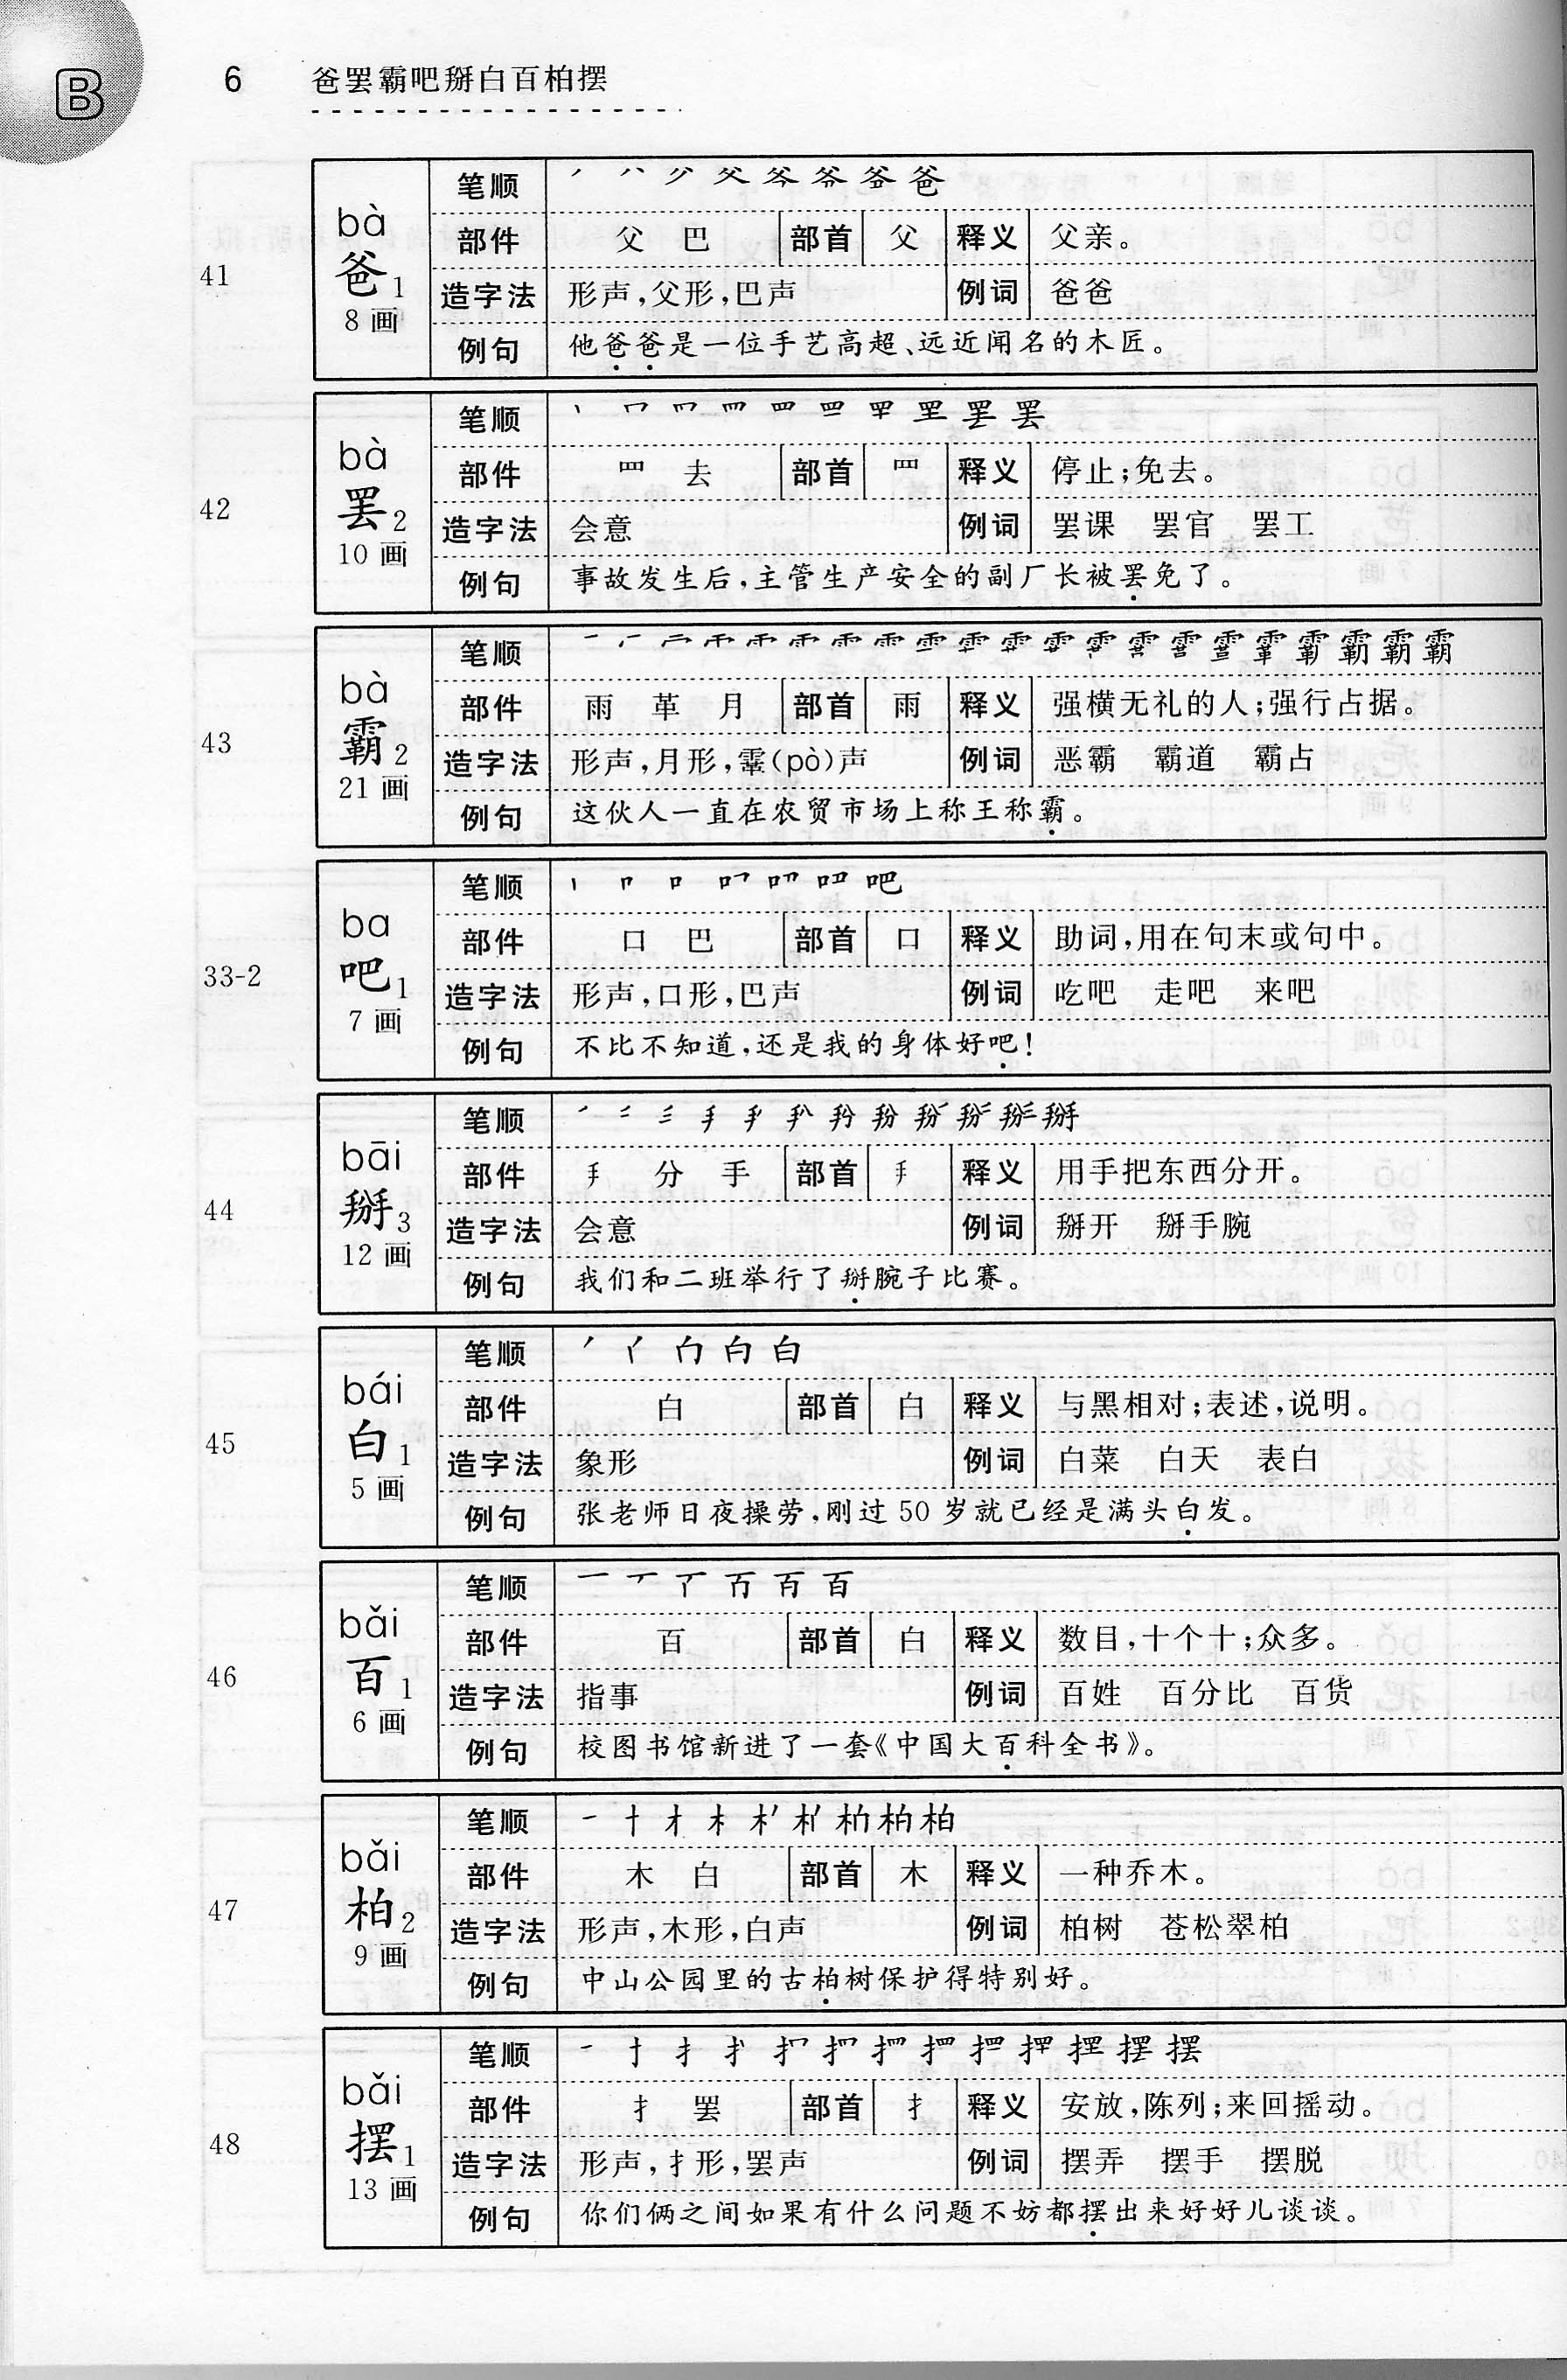 B
6 爸罢霸吧掰白百柏摆
41
bà
爸1
8画
笔顺
部件 父 巴 部首 父 释义 父亲。
造字法 形声,父形,巴声 例词 爸爸
例句 他爸爸是一位手艺高超、远近闻名的木匠。
42
bà
罢2
10画
笔顺
部件 罒 去 部首 罒 释义 停止;免去。
造字法 会意 例词 罢课 罢官 罢工
例句 事故发生后,主管生产安全的副厂长被罢免了。
43
bà
霸2
21画
笔顺
部件 雨 革 月 部首 雨 释义 强横无礼的人;强行占据。
造字法 形声,月形,䨣(pò)声 例词 恶霸 霸道 霸占
例句 这伙人一直在农贸市场上称王称霸。
33-2
ba
吧1
7画
笔顺
部件 口 巴 部首 口 释义 助词,用在句末或句中。
造字法 形声,口形,巴声 例词 吃吧 走吧 来吧
例句 不比不知道,还是我的身体好吧!
44
bāi
掰3
12画
笔顺
部件 手 分 手 部首 手 释义 用手把东西分开。
造字法 会意 例词 掰开 掰手腕
例句 我们和二班举行了掰腕子比赛。
45
bái
白1
5画
笔顺
部件 白 部首 白 释义 与黑相对;表述,说明。
造字法 象形 例词 白菜 白天 表白
例句 张老师日夜操劳,刚过50岁就已经是满头白发。
46
bǎi
百1
6画
笔顺
部件 百 部首 白 释义 数目,十个十;众多。
造字法 指事 例词 百姓 百分比 百货
例句 校图书馆新进了一套《中国大百科全书》。
47
bǎi
柏2
9画
笔顺
部件 木 白 部首 木 释义 一种乔木。
造字法 形声,木形,白声 例词 柏树 苍松翠柏
例句 中山公园里的古柏树保护得特别好。
48
bǎi
摆1
13画
笔顺
部件 扌 罢 部首 扌 释义 安放,陈列;来回摇动。
造字法 形声,扌形,罢声 例词 摆弄 摆手 摆脱
例句 你们俩之间如果有什么问题不妨都摆出来好好儿谈谈。